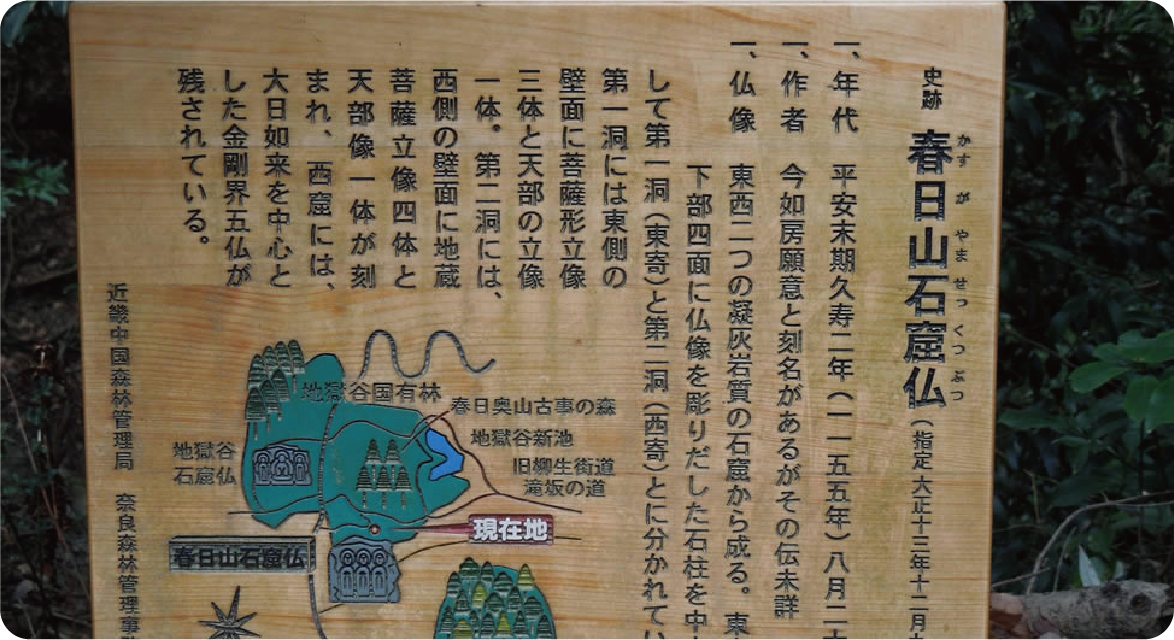 史跡 春日山石窟仏（指定 大正十三年十二月
かすがやませっくつぶつ
一、年代 平安末期久寿二年（一一五五年）八月二十
一、作者 今如房願意と刻名があるがその伝未詳
一、仏像 東西二つの凝灰岩質の石窟から成る。東
下部四面に仏像を彫りだした石柱を中
して第一洞（東寄）と第二洞（西寄）とに分かれてい
第一洞には東側の
壁面に菩薩形立像
三体と天部の立像
一体。第二洞には、
西側の壁面に地蔵
菩薩立像四体と
天部像一体が刻
まれ、西窟には、
大日如来を中心と
した金剛界五仏が
残されている。
地獄谷国有林
春日奥山古事の森
地獄谷新池
旧柳生街道
滝坂の道
地獄谷
石窟仏
現在地
春日山石窟仏
近畿中国森林管理局 奈良森林管理事